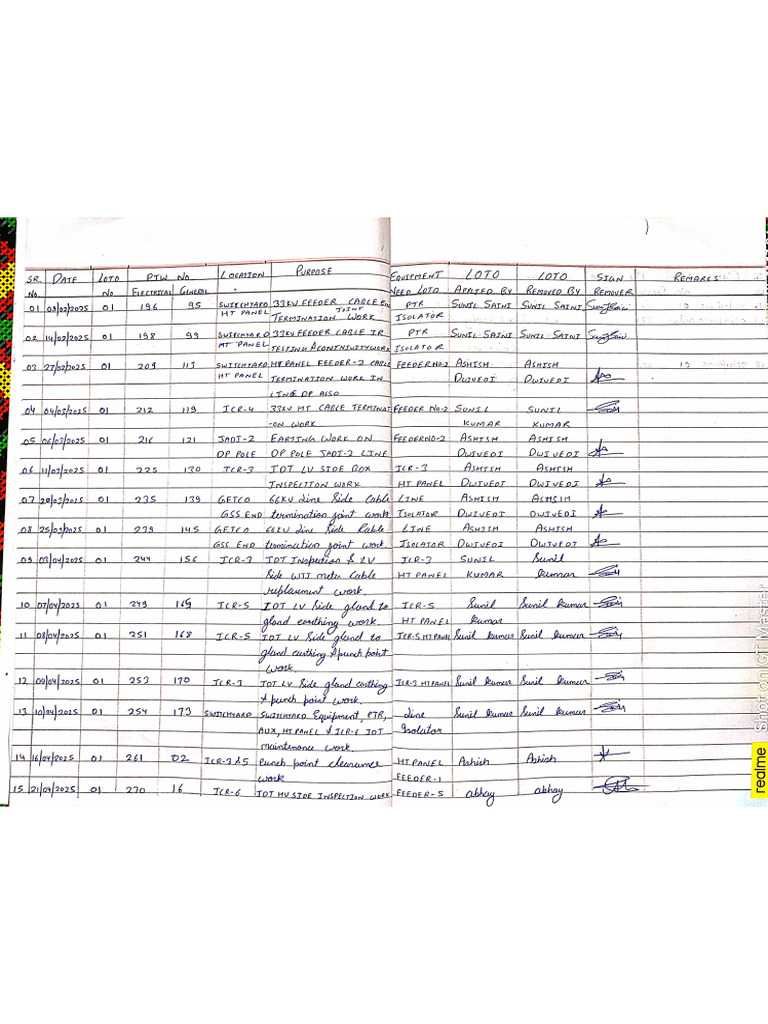 SR. No. DATE LOTO No PTW No ELECTRICAL GENERAL LOCATION PURPOSE EQUIPMENT NEED LOTO LOTO APPLIED BY LOTO REMOVED BY SIGN REMOVER REMARKS
01 03/02/2025 01 196 95 SWITCHYARD 33KV FEEDER CABLE END PTR SUNIL SAINI SUNIL SAINI
HT PANEL TERMINATION JOINT WORK ISOLATOR
02 14/02/2025 01 198 99 SWITCHYARD 33KV FEEDER CABLE IR PTR SUNIL SAINI SUNIL SAINI
HT PANEL TESTING & CONTINUITY WORK ISOLATOR
03 27/02/2025 01 209 113 SWITCHYARD HT PANEL FEEDER-2 CABLE FEEDER NO-2 ASHISH ASHISH
HT PANEL TERMINATION WORK IN DWIVEDI DWIVEDI
LINE DP ALSO
04 04/03/2025 01 212 119 ICR-4 33KV HT CABLE TERMINAT FEEDER NO-2 SUNIL SUNIL
-ON WORK KUMAR KUMAR
05 06/03/2025 01 216 121 JADI-2 EARTING WORK ON FEEDER NO-2 ASHISH ASHISH
DP POLE DP POLE JADI-2 LINE DWIVEDI DWIVEDI
06 11/03/2025 01 225 130 ICR-3 IDT LV SIDE BOX ICR-3 ASHISH ASHISH
INSPECTION WORK HT PANEL DWIVEDI DWIVEDI
07 20/03/2025 01 235 139 GETCO 66KV Line Side Cable LINE ASHISH ASHISH
GSS END termination joint work ISOLATOR DWIVEDI DWIVEDI
08 25/03/2025 01 239 145 GETCO 66KV Line Side Cable LINE ASHISH ASHISH
GSS END termination joint work. ISOLATOR DWIVEDI DWIVEDI
09 03/04/2025 01 244 156 ICR-3 IDT Inspection & LV ICR-3 SUNIL Sunil
Side WTI meter Cable HT PANEL KUMAR Kumar
replacement work.
10 07/04/2025 01 249 165 ICR-5 IDT LV Side gland to ICR-5 Sunil Sunil Kumar
gland earthing work. HT PANEL Kumar
11 08/04/2025 01 251 168 ICR-5 IDT LV Side gland to ICR-5 HT PANEL Sunil Kumar Sunil Kumar
gland earthing & punch point
work.
12 09/04/2025 01 253 170 ICR-3 IDT LV Side gland earthing ICR-3 HT PANEL Sunil Kumar Sunil Kumar
& punch point work.
13 10/04/2025 01 254 173 SWITCHYARD SWITCHYARD Equipment, PTR, Line Sunil Kumar Sunil Kumar
AUX, HT PANEL & ICR-6 IDT Isolator
maintenance work.
14 16/04/2025 01 261 02 ICR-3 & 5 Punch point clearance HT PANEL Ashish Ashish
work FEEDER-1
15 21/04/2025 01 270 16 ICR-6 IDT HV SIDE INSPECTION WORK FEEDER-5 abhay abhay
realme Shot on GT Master